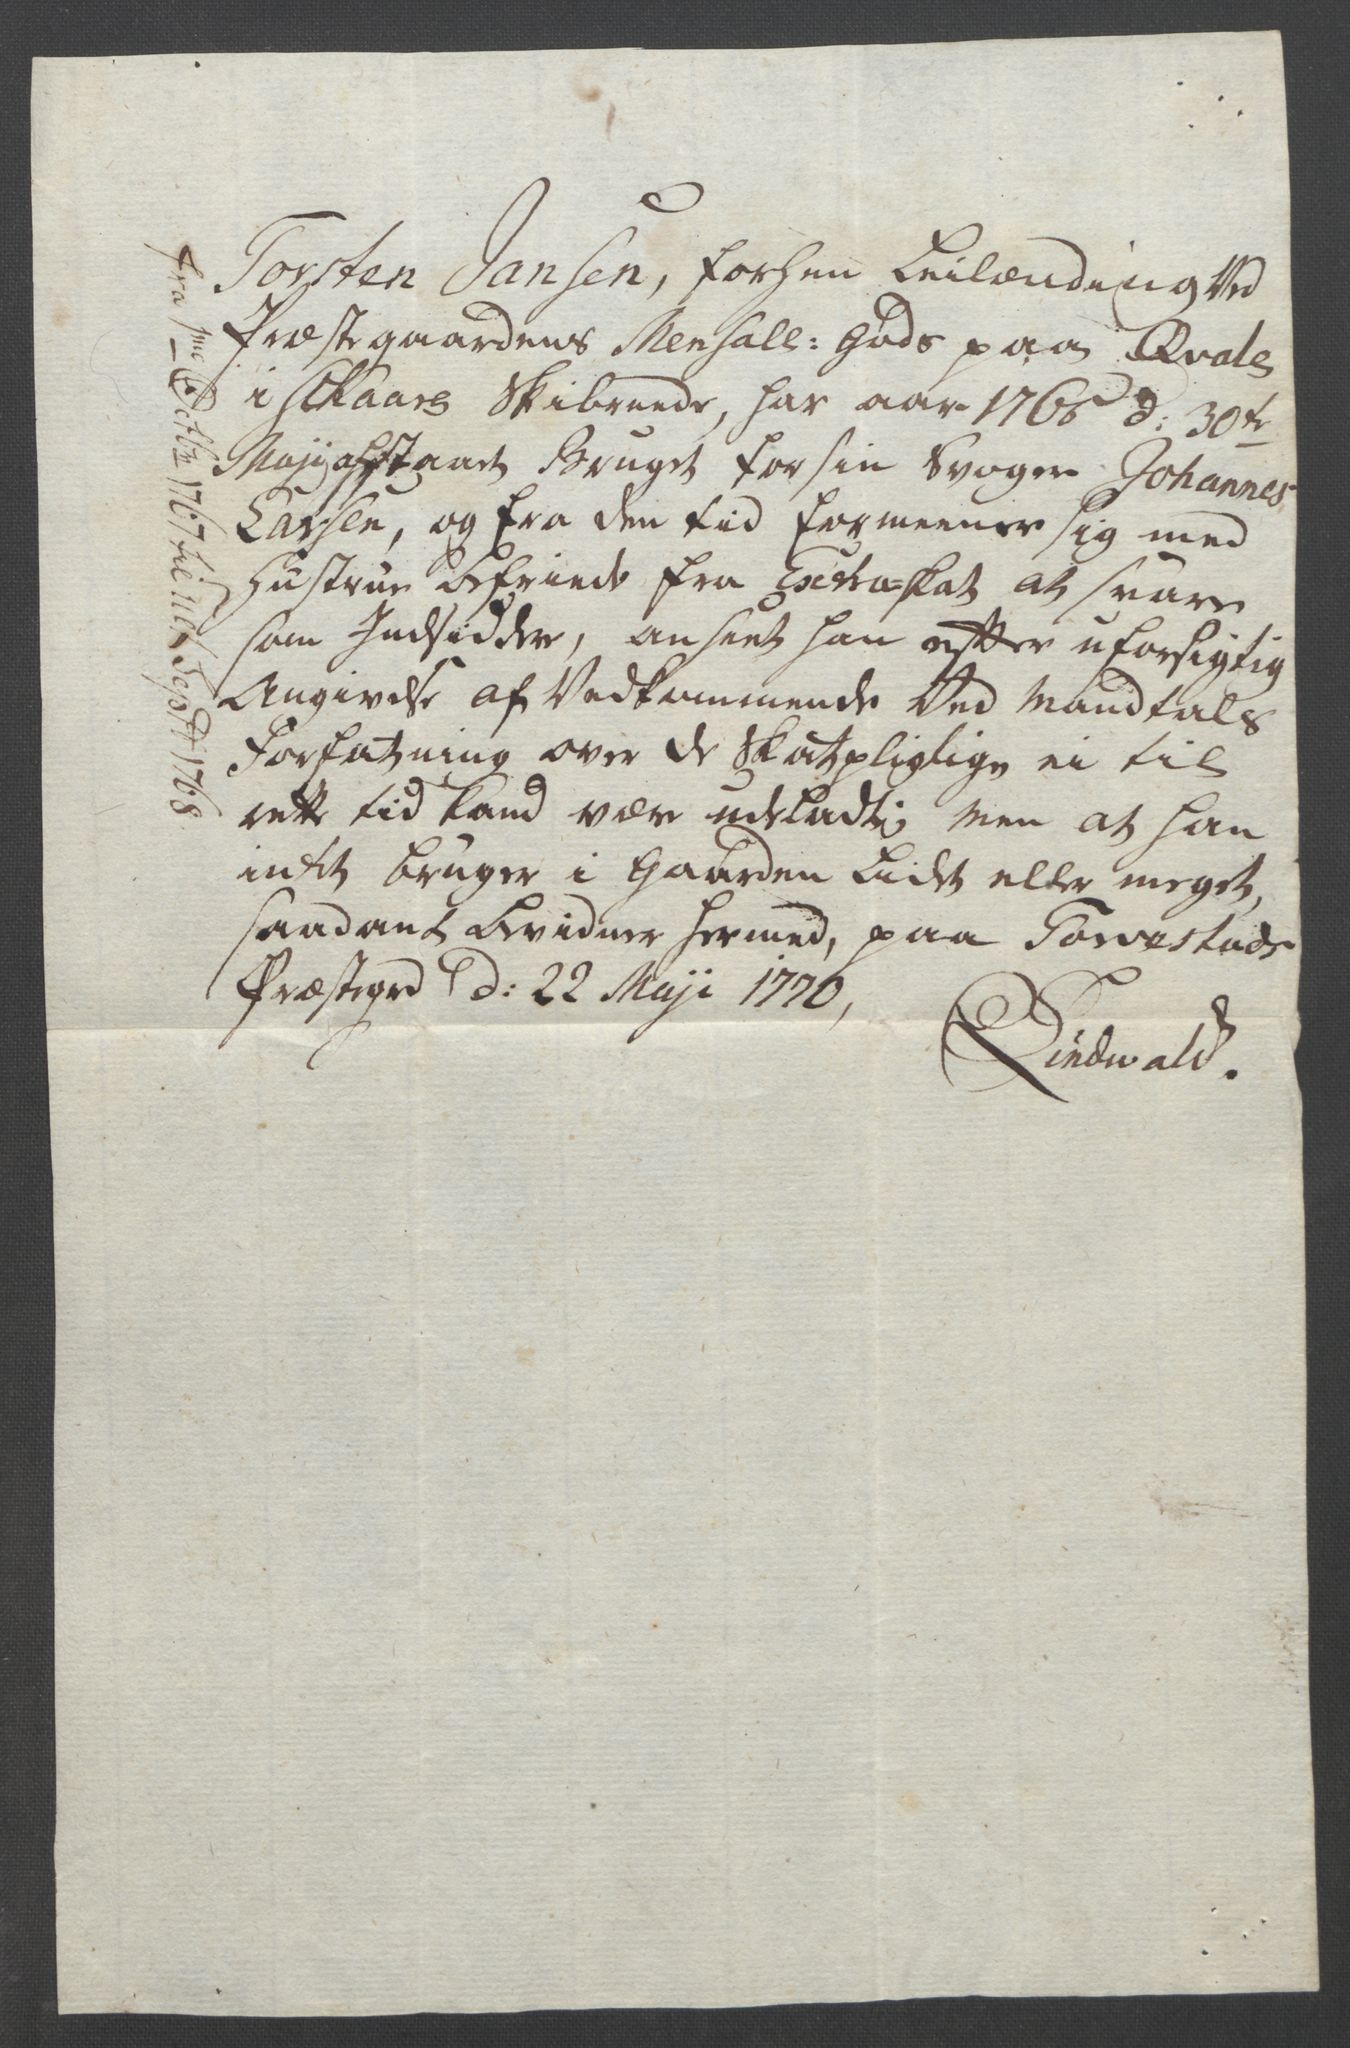 Torsten Jansen, forhen Leilænding Ved
Præstegaardens Mensall: Gods paa Qvale
i Skaare Skibrede, har aar 1768 d: 30te
Maji afstaaet Bruget for sin Svoger Johannes
Larsen, og fra den tid formeener sig med
Hustrue befriede fra Extra-skat at svare
som Indsidder, anseet han efter uforsigtig
Angivelse af Vedkommende Ved Mandtals
Forfatning over de Skatpligtige ei til
rette tid kand være udeladt; Men at han
intet bruger i Gaarden Lidet eller meget,
saadant bevidner hermed, paa Torvestads
Præstegrd d: 22 Maji 1770,
Lindwald.
fra pmo Octbr 1767 til ult Septr 1768